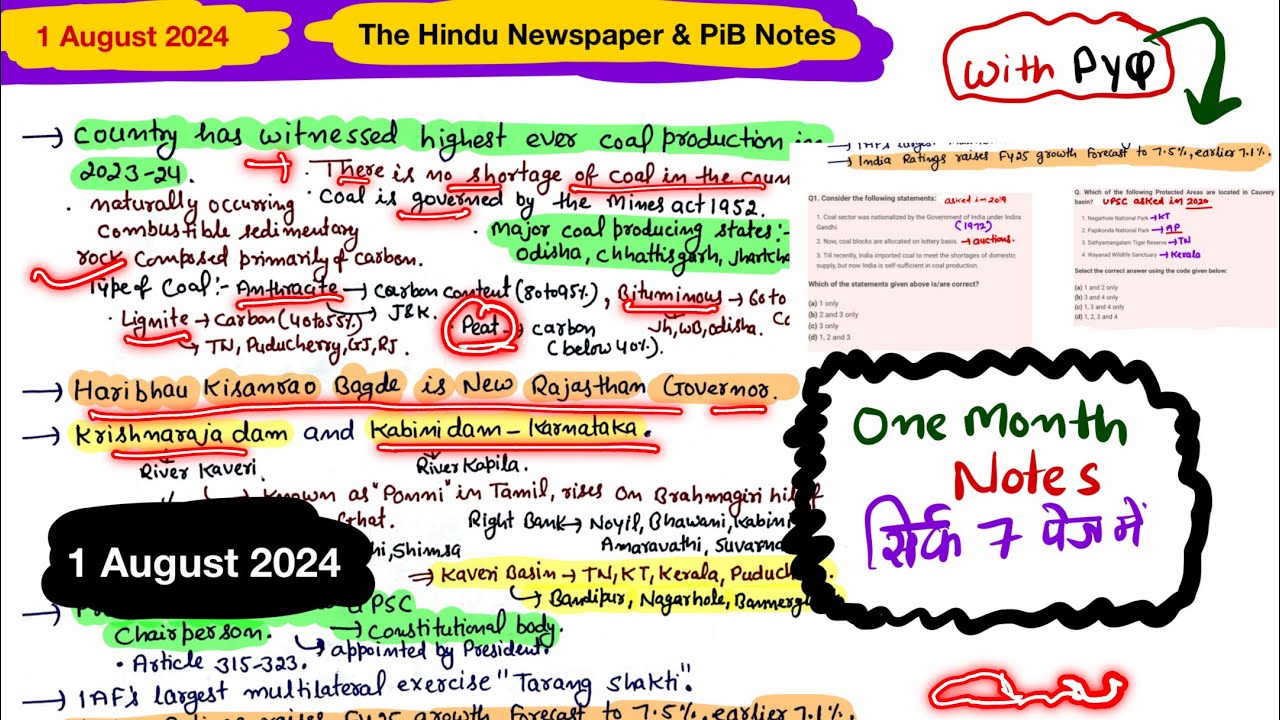 1 August 2024
The Hindu Newspaper & PiB Notes
with PYQ
→ Country has witnessed highest ever coal production in
2023-24.
· There is no shortage of coal in the coun
· naturally occurring
combustible sedimentary
rock composed primarily of carbon.
· Coal is governed by the Mines act 1952.
· Major coal producing states:-
Odisha, Chhattisgarh, Jharkha
Type of Coal:- Anthracite → carbon content (80 to 95%), Bituminous → 60 to
→ J&K.
Jh, WB, Odisha.
· Lignite → Carbon (40 to 55%)
→ TN, Puducherry, GJ, RJ.
· Peat → carbon
(below 40%).
→ Haribhau Kisanrao Bagde is New Rajasthan Governor.
→ Krishnaraja dam and Kabini dam - Karnataka.
River Kaveri.
River Kapila.
known as "Ponni" in Tamil, rises on Brahmagiri hill of
Ghat.
Right Bank → Noyil, Bhawani, Kabini
Amaravathi, Suvarna
hi, Shimsa
1 August 2024
⇒ Kaveri Basin → TN, KT, Kerala, Puduch
→ Bandipur, Nagarhole, Bannergh
UPSC
Chairperson.
→ Constitutional body.
→ appointed by President.
· Article 315-323.
→ IAF's largest multilateral exercise "Tarang Shakti".
raises FY25 growth Forecast to 7.5%, earlier 7.1%.
→ IAF's largest
→ India Ratings raises FY25 growth Forecast to 7.5%, earlier 7.1%.
Q1. Consider the following statements: asked in 2019
1. Coal sector was nationalized by the Government of India under Indira
Gandhi. (1972)
2. Now, coal blocks are allocated on lottery basis. → auctions.
3. Till recently, India imported coal to meet the shortages of domestic
supply, but now India is self-sufficient in coal production.
Which of the statements given above is/are correct?
(a) 1 only
(b) 2 and 3 only
(c) 3 only
(d) 1, 2 and 3
Q. Which of the following Protected Areas are located in Cauvery
basin? UPSC asked in 2020
1. Nagarhole National Park → KT
2. Papikonda National Park → AP
3. Sathyamangalam Tiger Reserve → TN
4. Wayanad Wildlife Sanctuary → Kerala
Select the correct answer using the code given below:
(a) 1 and 2 only
(b) 3 and 4 only
(c) 1, 3 and 4 only
(d) 1, 2, 3 and 4
One Month
Notes
सिर्फ 7 पेज में